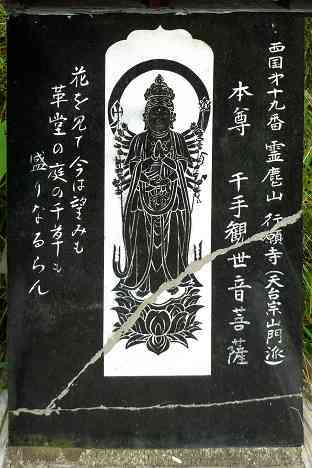 西国才十九番 霊麀山 行願寺(天台宗山門派)
本尊 千手観世音菩薩
花を見て今は望みも
革堂の庭の千草も
盛りなるらん